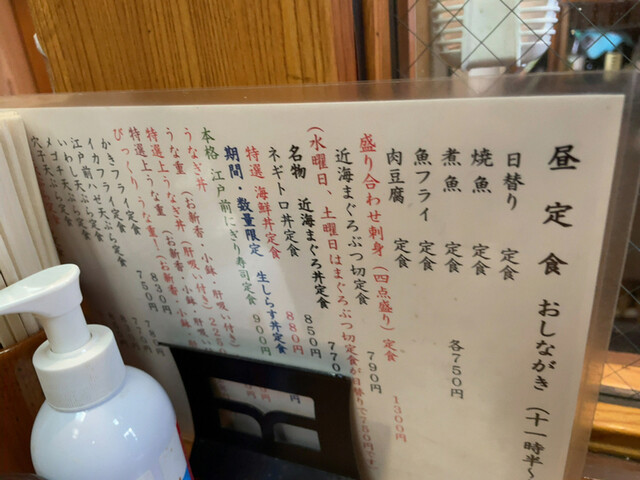 昼定食 おしながき (十一時半～
日替り 定食
焼魚 定食
煮魚 定食 各750円
魚フライ 定食
肉豆腐 定食
盛り合わせ刺身 (四点盛り) 定食 1300円
近海まぐろぶつ切定食 790円
(水曜日、土曜日はまぐろぶつ切定食が日替りで750円です
名物 近海まぐろ丼定食 850円
ネギトロ丼定食 880円
期間・数量限定 生しらす丼定食
特選 海鮮丼定食
本格 江戸前にぎり寿司定食 900円
うなぎ丼 (お新香・小鉢・肝吸い付き)
うな重 (お新香・小鉢・肝吸い付き)
特選上うなぎ丼 (お新香・小鉢
特選上うな重 (お新香・小鉢
びっくりうな重!
かきフライ定食 830円
イカフライ定食 750円
江戸前ハゼ天ぷら定食
いわし天ぷら定食
メゴチ天ぷら定食
穴子天ぷら定食